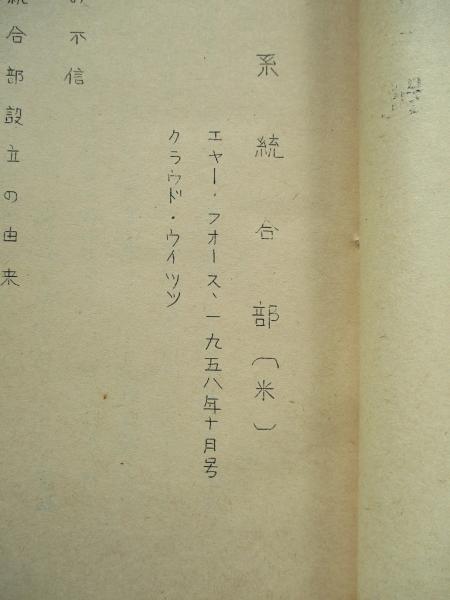 系統合部（米）
エヤー・フォース、一九五八年十月号
クラウド・ウイツツ
不信
統合部設立の由来